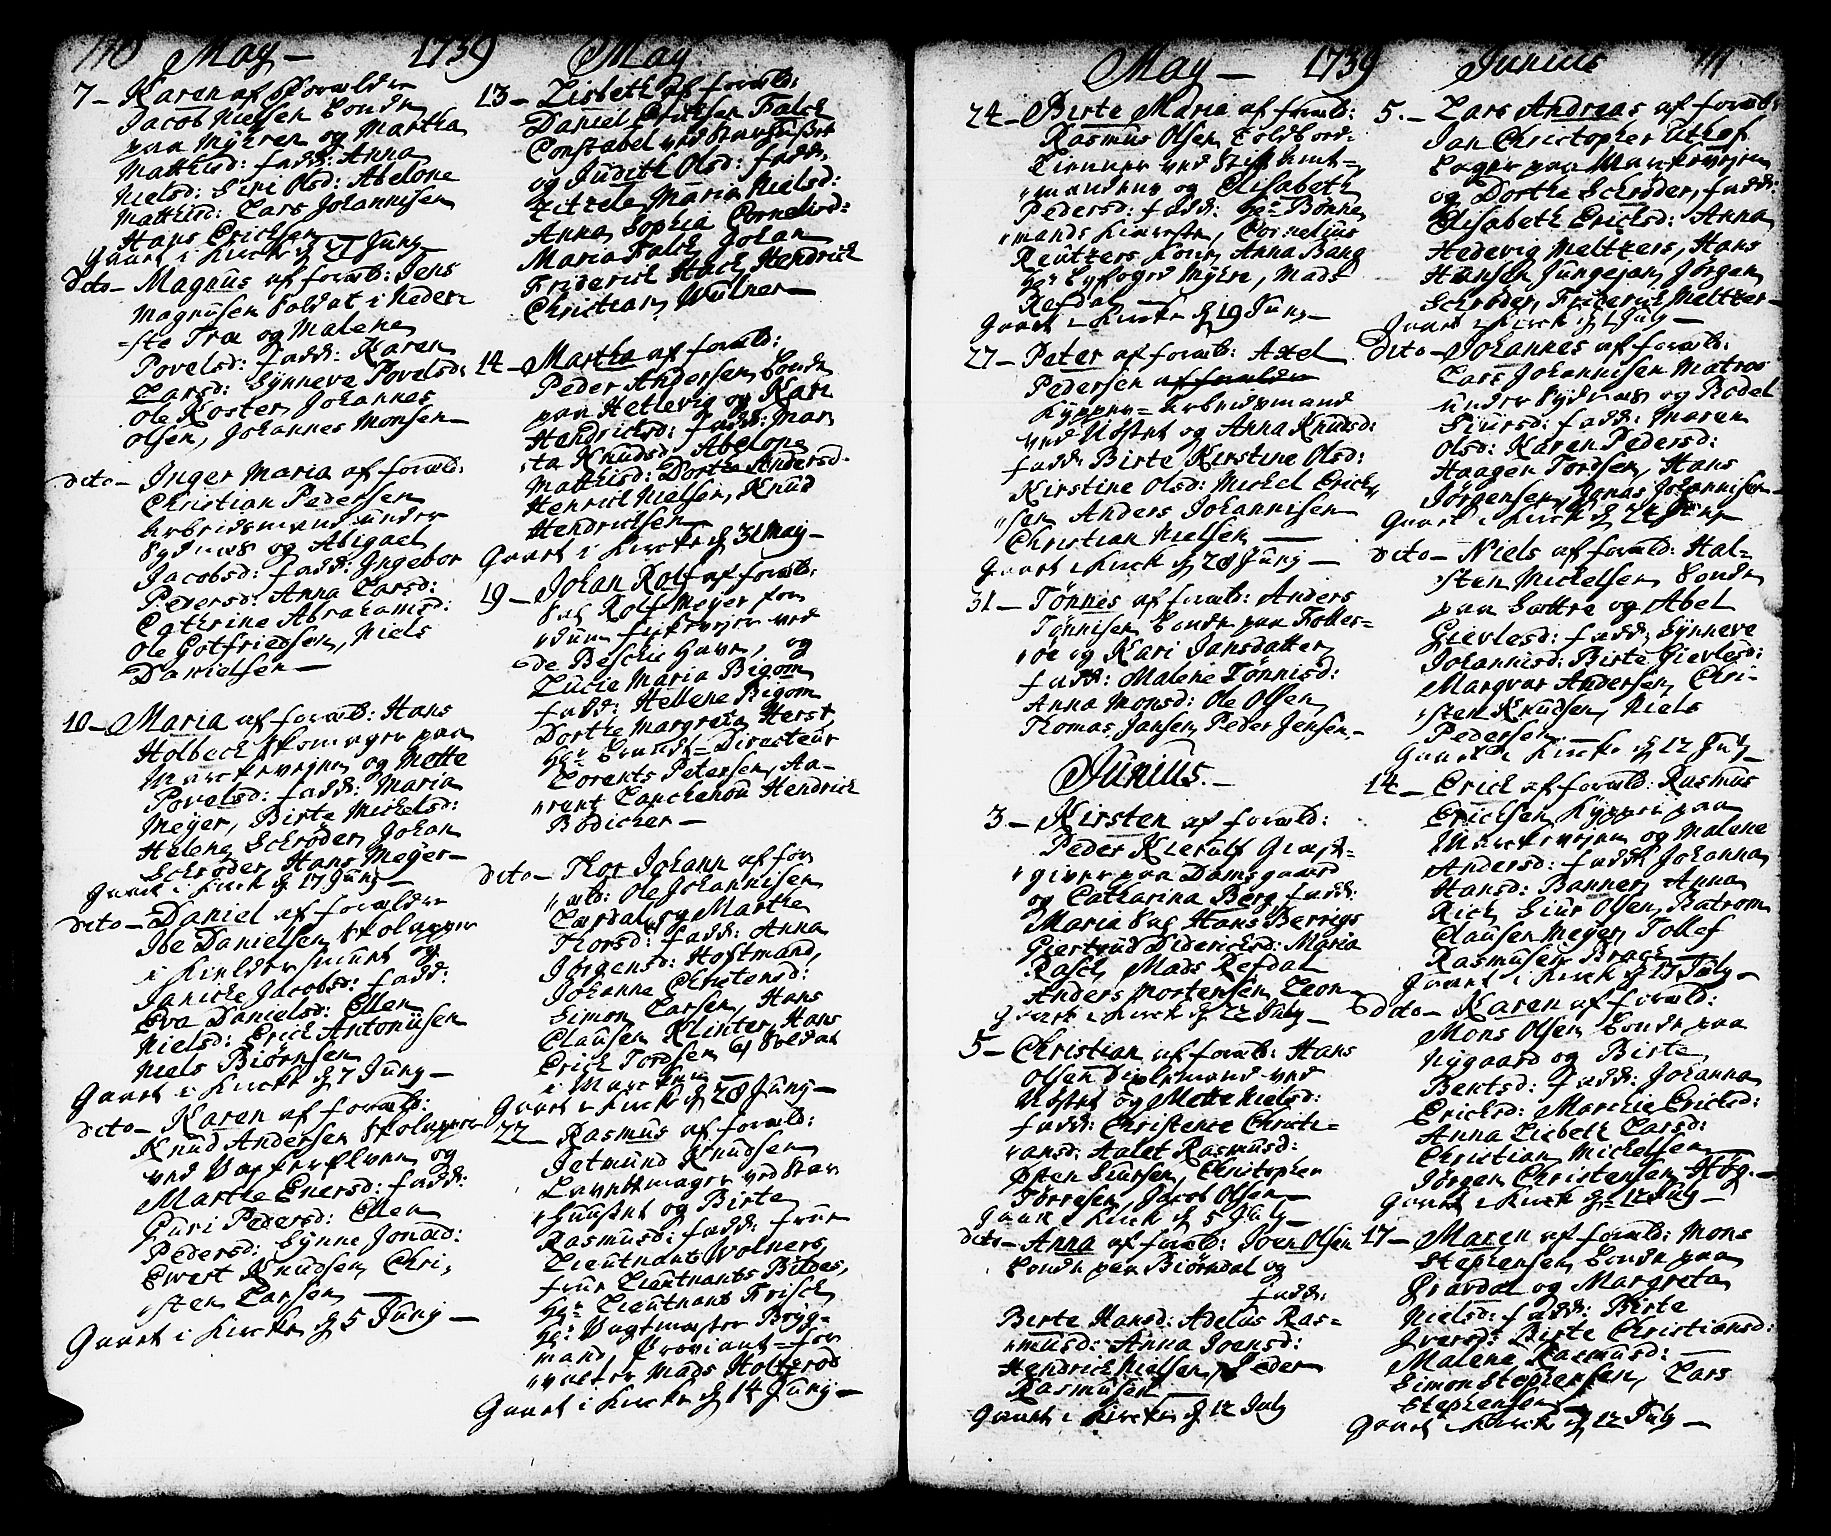 110 May — 1739 May
7 — Karen af Forældre
Jacob Nielsen bonde
paa Myhren og Martha
Matthisd: fadd: Anna
Nielsd: Siri Olsd: Abelone
Matthisd: Lars Johannisen
Hans Ericksen
Gaaet i Kircke d 21 Juny
dito — Magnus af foræld: Jens
Magnusen Soldat i Neder-
ste Træ og Malene
Povelsd: fadd: Karen
Larsd: Synneve Povelsd:
Ole Koster, Johannes
Olsen, Johannes Monsen —
dito — Inger Maria af foræld:
Christian Pedersen
Arbeidsmand under
Sydnæs og Abigael
Jacobsd: fadd: Ingebor
Pedersd: Anna Larsd:
Cathrine Abrahamsd:
Ole Gotfriedsen, Niels
Danielsen —
10 — Maria af foræld: Hans
Holbeck Skomager paa
Marckeveien og Mette
Povelsd: fadd: Maria
Meyer, Birte Mickelsd:
Helene Schrøder, Johan
Schrøder, Hans Meyer —
Gaaet i Kirck d 17 Juny —
dito — Daniel af forældre
Ibe Danielsen Skolapper
i Kielder smuet og
Janicke Jacobsd: fadd:
Eva Danielsd: Ellen
Nielsd: Erick Antoniisen
Niels Biørnsen
Gaaet i Kircke d 7 Juny —
dito — Karen af foræld:
Knud Andersen Skolapper
ved Vaskerelven og
Marthe Enersd: fadd:
Guri Pedersd: Ellen
Pedersd: Synne Jonasd:
Ewert Knudsen, Chri-
sten Larsen —
Gaaet i Kircke d 5 Juny —
13 — Lisbeth af foræld:
Daniel Ericksen Falck
Constabel ved Stavhuset
og Judith Olsd: fadd:
Zitzele Maria Nielsd:
Anna Sophia Corneliisd:
Maria Falck Johan
Friderick Hack, Hendrick
Christian Wulner —
14 — Martha af foræld:
Peder Andersen bonde
paa Hetlevig og Kari
Hendricksd: fadd: Mar
ta Knudsd: Abelone
Matthisd: Dorthe Andersd.
Henrick Nielsen, Knud
Hendricksen —
Gaaet i Kircke d 31 May —
19 — Johan Rolf af foræld:
Sal Rolf Meyer for
dum fiskeveier ved
de Beschie Gavn, og
Lucie Maria Bigom
fadd: Hellene Bigom
Dorthe Margreta Herst,
Hr: Grundt-Directeur
Lorents Petersen, Aa-
rent Lanckenou Hendrick
Bødicker —
dito — Thor Johann af for
æld: Ole Johannisen
Lærdal, og Marthe
Thorsd: fadd: Anna
Jørgensd: Hoftmand,
Johanne Christensd:
Simon Larsen, Hans
Clausen Klinter, Hans
Erick Tordsen og Soldat
i Marcken —
Gaaet i Kircke d 28 Juny —
22 — Rasmus af foræld:
Jetmund Knudsen
Lavettmager ved Stav
huuset og Birte
Rasmusd: fadd: frue
Lieutnants Wolners,
frue Lieutnants Bildes,
Hr: Lieutnant Frisch
Hr: Vagtmester Bryg-
mand, Proviant-for
valter Mads Holterod
Gaaet i Kircke d 14 Juny —
May — 1739 Junius 111
24 — Birte Maria af foræld:
Rasmus Olsen Toldbord-
tienner ved Stift Amt-
mandens og Elisabeth
Pedersd: fadd: Hr: Bonne
mands Kiæreste, Cornelius
Reutters Kone, Anna Bang
Hr: Byfoged Myhre, Mads
Refdal —
Gaaet i Kircke d 19 Juny —
27 — Peter af foræld: Axel
Pedersen af forældre
Kypper-Arbeidsmand
ved Nøstet og Anna Knudsd:
fadd: Birte Kirstine Olsd:
Kirstine Olsd: Mickel Erick-
sen Anders Johannisen
Christian Nielsen —
Gaaet i Kirck d 28 Juny —
31 — Tønnes af foræld: Anders
Tønnisen bonde paa Folles-
øe og Kari Jansdatter
fadd: Malene Tønnisd:
Anna Monsd: Ole Olsen,
Thomas Jansen, Peder Jensen, —
Junius. —
3 — Kirsten af foræld:
Peder Kierulf Giest-
giver paa Damsgaard
og Catharina Berg fadd:
Maria Sal Hans Berrigs
Giertrud Didericksd: Maria
Rasch, Mads Refdal
Anders Mortensen Leon —
Gaaet i Kirck d 12 July —
5 — Christian af foræld: Hans
Olsen Deplemand ved
Nøstet og Mette Nielsd:
fadd: Christence Christi-
ansd: Aalet Rasmusd:
Østen Siursen, Christopher
Torresen, Jacob Olsen —
Gaaet i Kirck d 5 July —
dito — Anna af foræld: Joen Olsen
bonde paa Biørndal og
fadd:
Birte Hansd: Adelus Ras-
musd: Anna Joensd:
Hendrick Nielsen, Peder
Rasmusen —
Gaaet i Kircke d 12 July
5. — Lars Andreas af foræld:
Jan Christopher Uthof
Bager paa Marckeveien
og Dorthe Schrøder, fadd:
Elisabeth Ericksd: Anna
Hedevig Meltzers, Hans
Hansen Jungejan, Jørgen
Schrøder, Friderick Meltzer —
Gaaet i Kirck d 1 July —
dito — Johannes af foræld:
Lars Johannisen Matros
under Sydnæs og Bodel
Siursd: fadd: Maren
Olsd: Karen Pedersd:
Haagen Tordsen, Hans
Jørgensen, Jonas Johannisen —
Gaaet i Kirck d 24 Juny
dito — Niels af foræld: Hal-
sten Mickelsen bonde
paa Sættre og Abel
Gievlesd: fadd: Synneve
Johannisd: Birte Gievlesd:
Marqvar Andersen, Chri-
sten Knudsen, Niels
Pedersen
Gaaet i Kircke d 12 July
14 — Erick af foræld: Rasmus
Ericksen Kypper paa
Marckeveien og Malene
Andersd: fadd: Johanna
Hansd: Banner, Anna
Rick, Siur Olsen, Batrom
Clausen Meyer, Tollef
Rasmusen Brack —
Gaaet i Kirck d 15 July —
dito — Karen af foræld:
Mons Olsen bonde paa
Nygaard og Birte
Bentsd: fadd: Johanna
Ericksd: Marchie Ericksd:
Anna Liebeth Larsd:
Christian Mickelsen —
Jørgen Christensen Høg. —
Gaaet i Kirck d 12 July —
17 — Maren af foræld: Mons
Stephensen bonde paa
Gravdal og Margreta
Nielsd: fadd: Birte
Iversd: Birte Christiansd:
Malene Rasmusd: —
Simon Stephensen, Lars
Stephensen —
Gaaet i Kircke d 12 July —